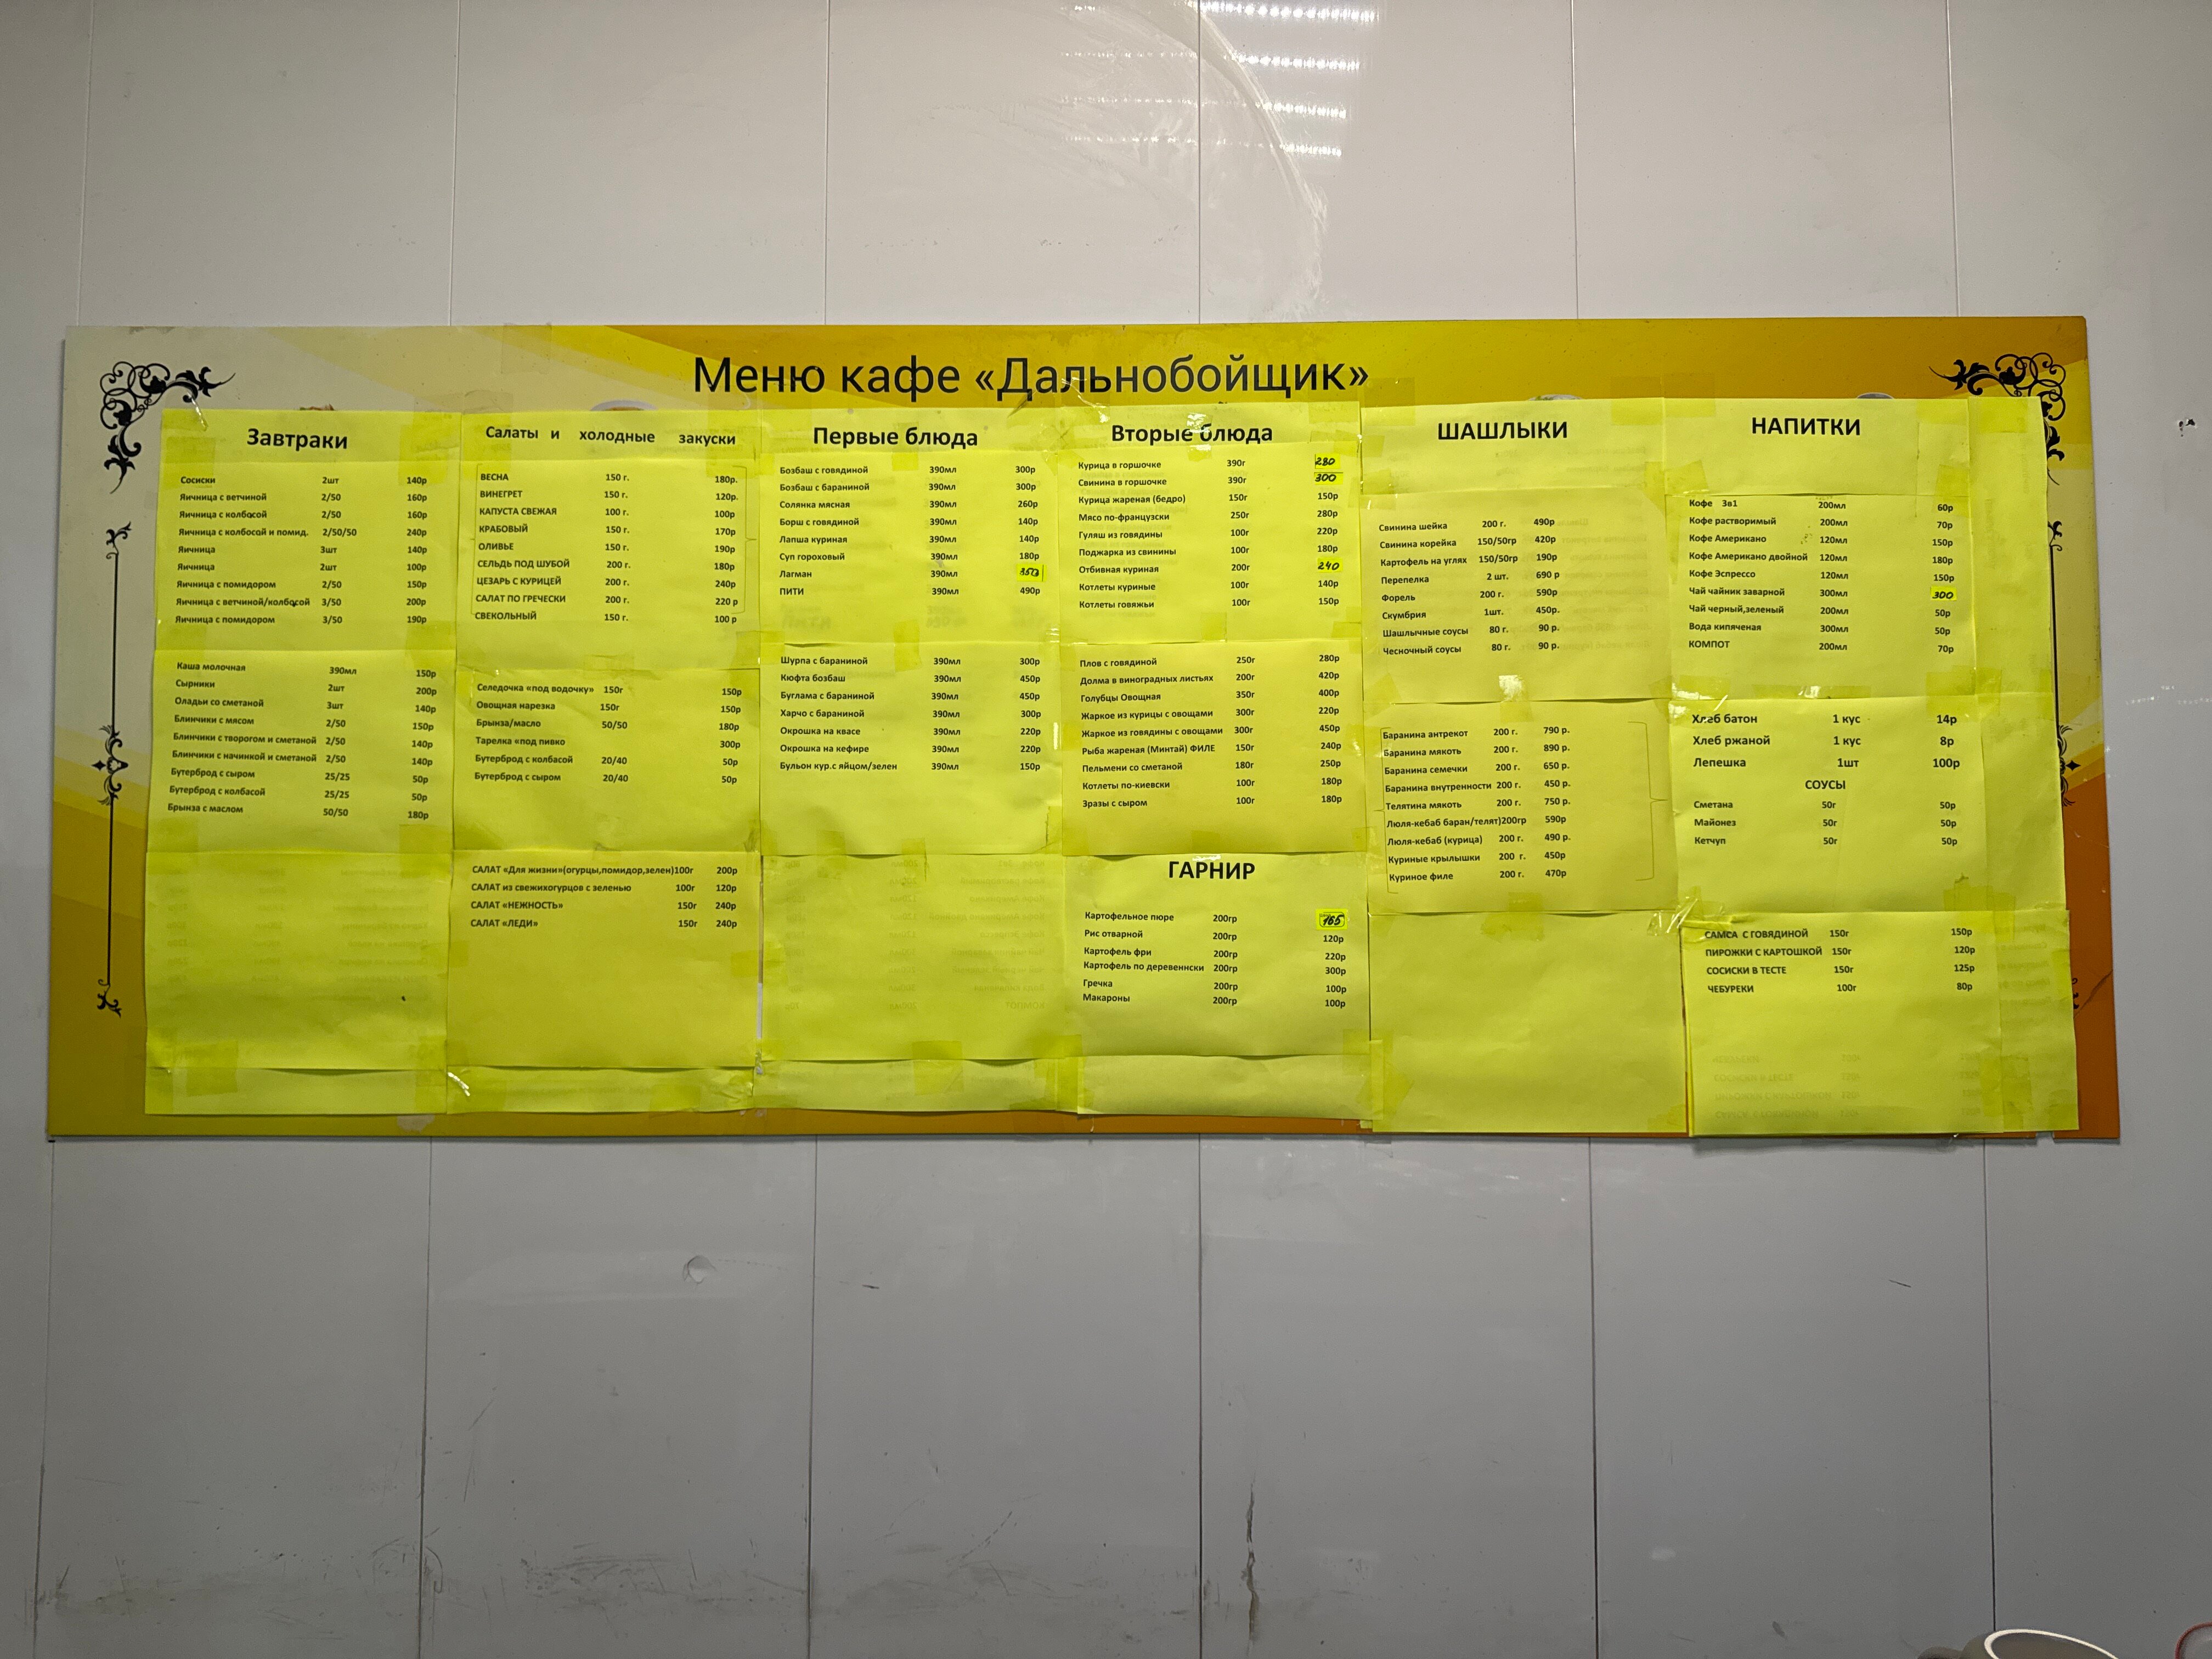 Меню кафе «Дальнобойщик»
Завтраки
Сосиски 2шт 140р
Яичница с ветчиной 2/50 160р
Яичница с колбасой 2/50 160р
Яичница с колбасой и помид. 2/50/50 240р
Яичница 3шт 140р
Яичница 2шт 100р
Яичница с помидором 2/50 150р
Яичница с ветчиной/колбасой 3/50 200р
Яичница с помидором 3/50 190р
Каша молочная 390мл 150р
Сырники 2шт 200р
Оладьи со сметаной 3шт 140р
Блинчики с мясом 2/50 150р
Блинчики с творогом и сметаной 2/50 140р
Блинчики с начинкой и сметаной 2/50 140р
Бутерброд с сыром 25/25 50р
Бутерброд с колбасой 25/25 50р
Брынза с маслом 50/50 180р
Салаты и холодные закуски
ВЕСНА 150 г. 180р.
ВИНЕГРЕТ 150 г. 120р.
КАПУСТА СВЕЖАЯ 100 г. 100р
КРАБОВЫЙ 150 г. 170р
ОЛИВЬЕ 150 г. 190р
СЕЛЬДЬ ПОД ШУБОЙ 200 г. 180р
ЦЕЗАРЬ С КУРИЦЕЙ 200 г. 240р
САЛАТ ПО ГРЕЧЕСКИ 200 г. 220 р
СВЕКОЛЬНЫЙ 150 г. 100 р
Селедочка «под водочку» 150г 150р
Овощная нарезка 150г 150р
Брынза/масло 50/50 180р
Тарелка «под пивко 300р
Бутерброд с колбасой 20/40 50р
Бутерброд с сыром 20/40 50р
САЛАТ «Для жизни»(огурцы,помидор,зелен)100г 200р
САЛАТ из свежихогурцов с зеленью 100г 120р
САЛАТ «НЕЖНОСТЬ» 150г 240р
САЛАТ «ЛЕДИ» 150г 240р
Первые блюда
Бозбаш с говядиной 390мл 300р
Бозбаш с бараниной 390мл 300р
Солянка мясная 390мл 260р
Борщ с говядиной 390мл 140р
Лапша куриная 390мл 140р
Суп гороховый 390мл 180р
Лагман 390мл 350
ПИТИ 390мл 490р
Шурпа с бараниной 390мл 300р
Кюфта бозбаш 390мл 450р
Буглама с бараниной 390мл 450р
Харчо с бараниной 390мл 300р
Окрошка на квасе 390мл 220р
Окрошка на кефире 390мл 220р
Бульон кур.с яйцом/зелен 390мл 150р
Вторые блюда
Курица в горшочке 390г 280
Свинина в горшочке 390г 300
Курица жареная (бедро) 150г 150р
Мясо по-французски 250г 280р
Гуляш из говядины 100г 220р
Поджарка из свинины 100г 180р
Отбивная куриная 200г 240
Котлеты куриные 100г 140р
Котлеты говяжьи 100г 150р
Плов с говядиной 250г 280р
Долма в виноградных листьях 200г 420р
Голубцы Овощная 350г 400р
Жаркое из курицы с овощами 300г 220р
Жаркое из говядины с овощами 300г 450р
Рыба жареная (Минтай) ФИЛЕ 150г 240р
Пельмени со сметаной 180г 250р
Котлеты по-киевски 100г 180р
Зразы с сыром 100г 180р
ГАРНИР
Картофельное пюре 200гр 165
Рис отварной 200гр 120р
Картофель фри 200гр 220р
Картофель по деревеннски 200гр 300р
Гречка 200гр 100р
Макароны 200гр 100р
ШАШЛЫКИ
Свинина шейка 200 г. 490р
Свинина корейка 150/50гр 420р
Картофель на углях 150/50гр 190р
Перепелка 2 шт. 690 р
Форель 200 г. 590р
Скумбрия 1шт. 450р.
Шашлычные соусы 80 г. 90 р.
Чесночный соусы 80 г. 90 р.
Баранина антрекот 200 г. 790 р.
Баранина мякоть 200 г. 890 р.
Баранина семечки 200 г. 650 р.
Баранина внутренности 200 г. 450 р.
Телятина мякоть 200 г. 750 р.
Люля-кебаб баран/телят)200гр 590р
Люля-кебаб (курица) 200 г. 490 р.
Куриные крылышки 200 г. 450р
Куриное филе 200 г. 470р
НАПИТКИ
Кофе 3в1 200мл 60р
Кофе растворимый 200мл 70р
Кофе Американо 120мл 150р
Кофе Американо двойной 120мл 180р
Кофе Эспрессо 120мл 150р
Чай чайник заварной 300мл 300
Чай черный,зеленый 200мл 50р
Вода кипяченая 300мл 50р
КОМПОТ 200мл 70р
Хлеб батон 1 кус 14р
Хлеб ржаной 1 кус 8р
Лепешка 1шт 100р
СОУСЫ
Сметана 50г 50р
Майонез 50г 50р
Кетчуп 50г 50р
САМСА С ГОВЯДИНОЙ 150г 150р
ПИРОЖКИ С КАРТОШКОЙ 150г 120р
СОСИСКИ В ТЕСТЕ 150г 125р
ЧЕБУРЕКИ 100г 80р